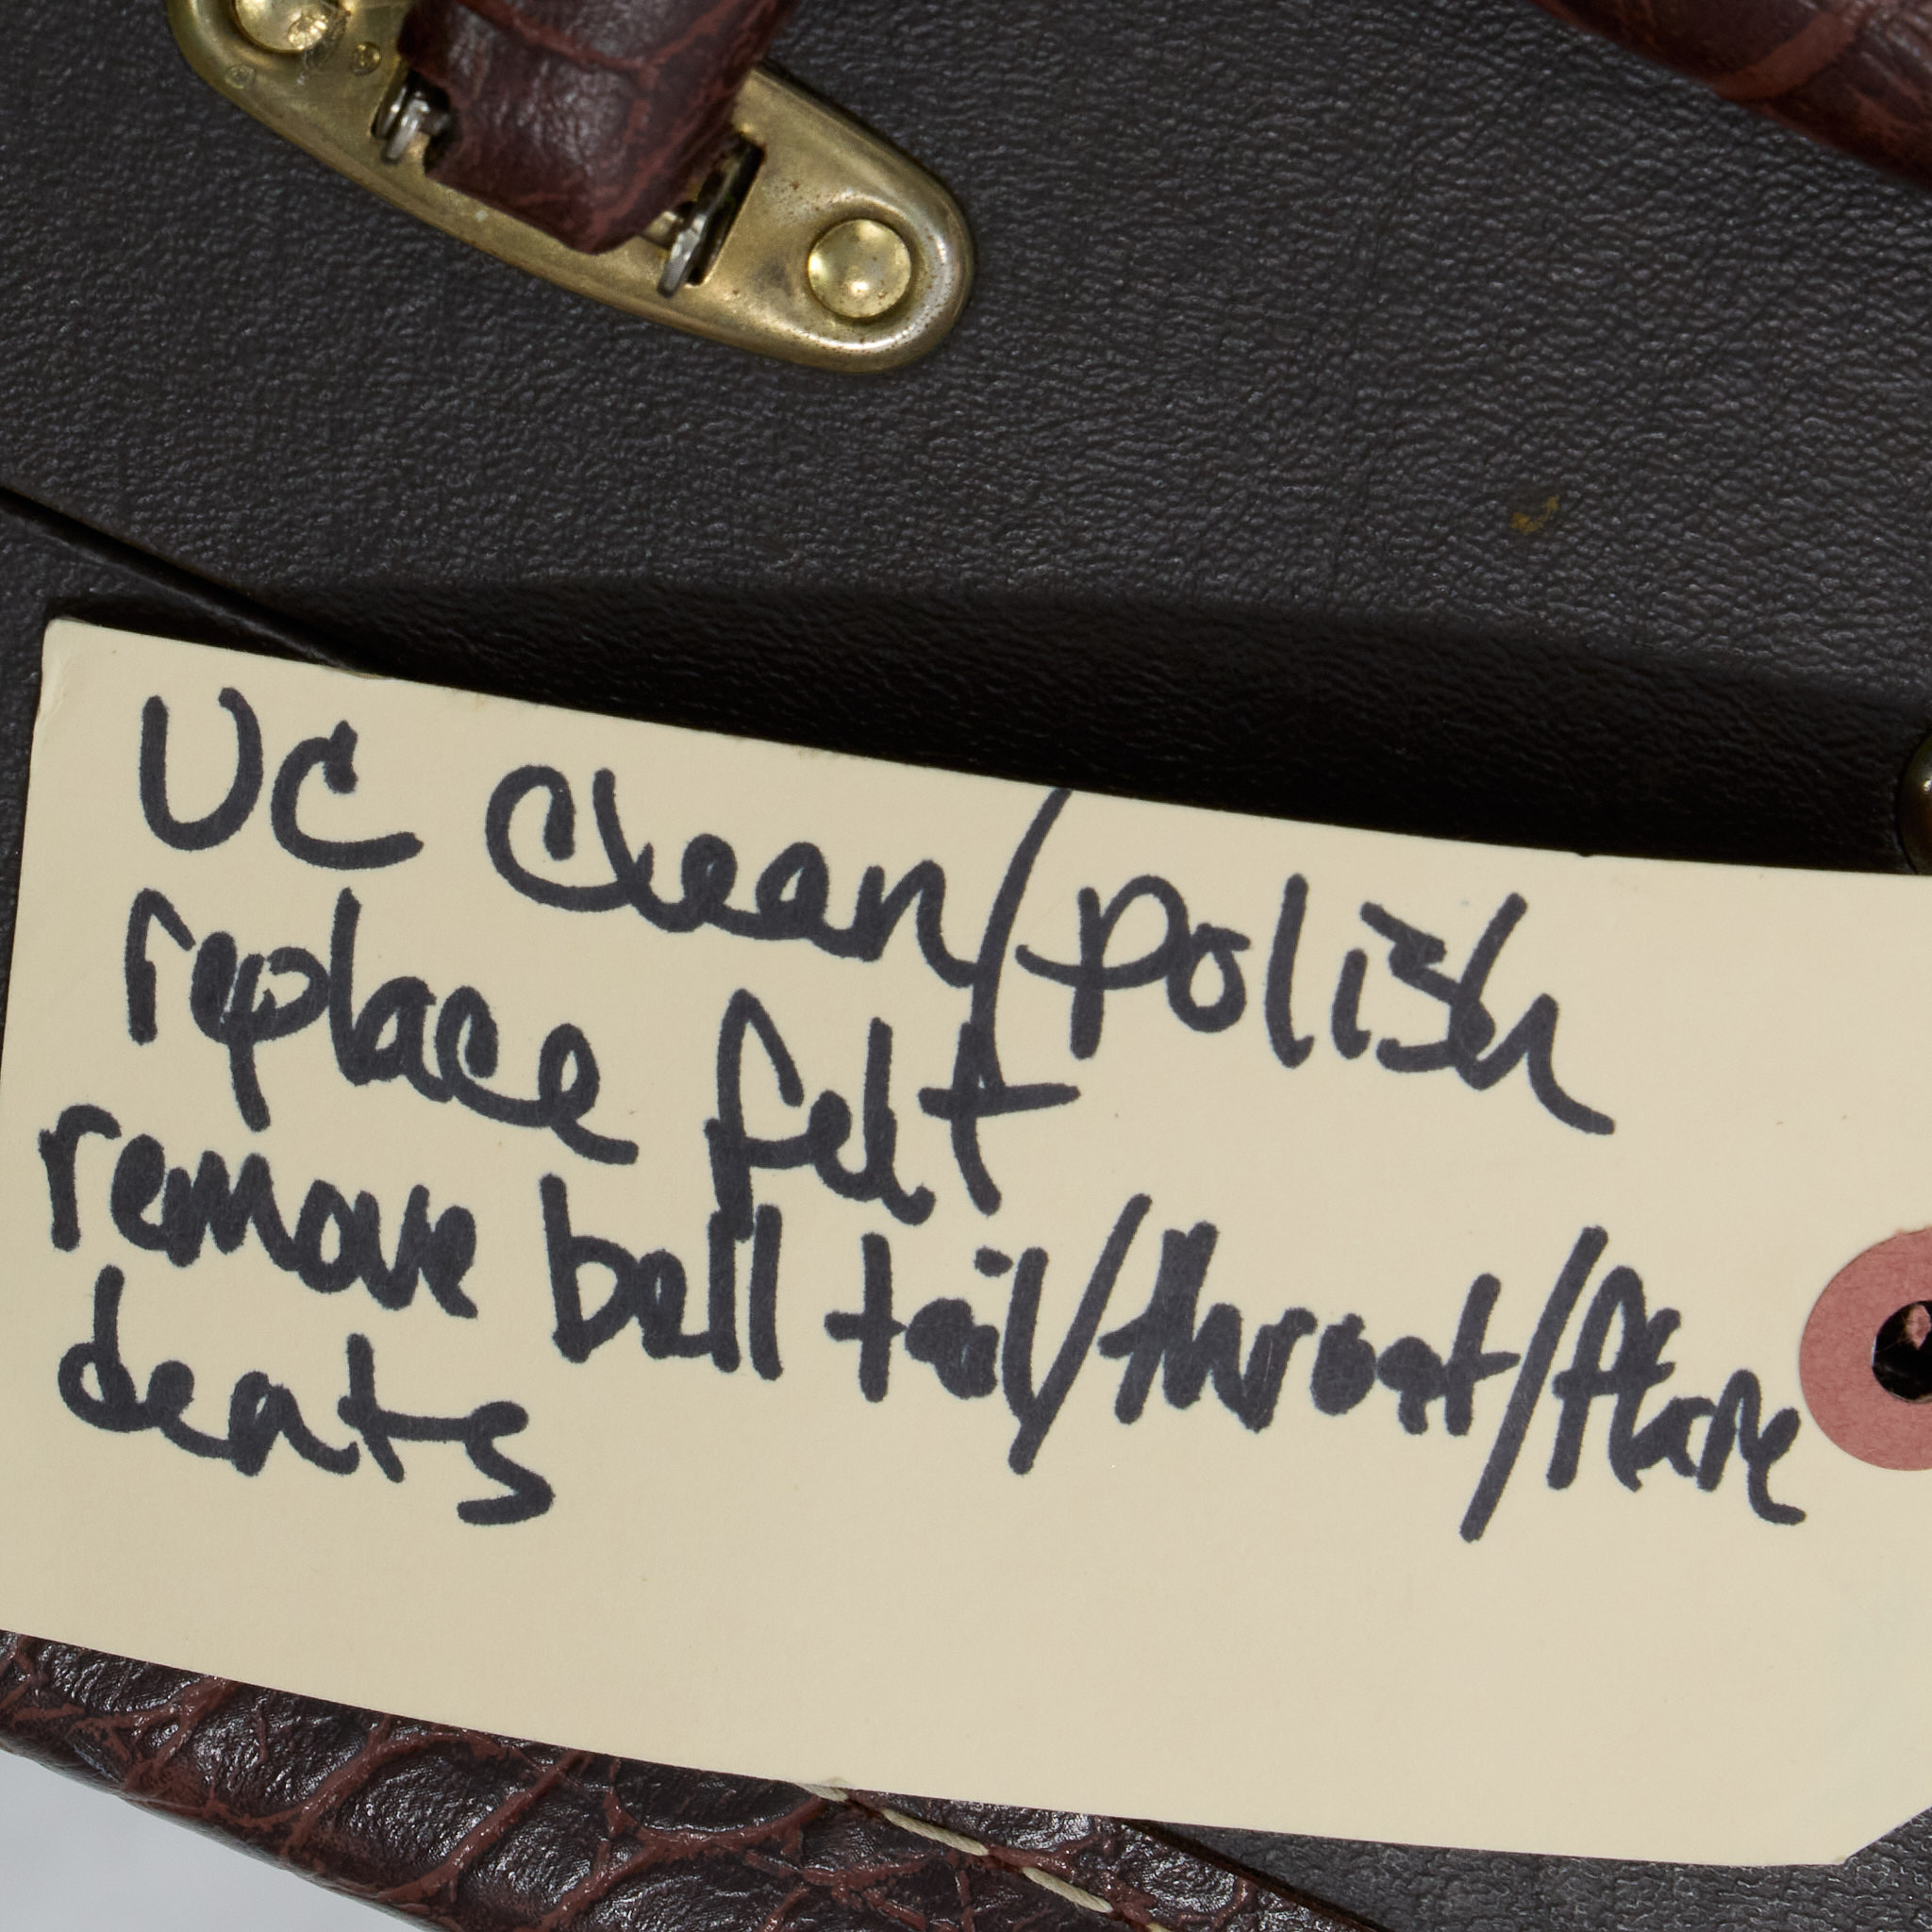 UC Clean/polish
replace felt
remove bell tail/throat/flare
dents